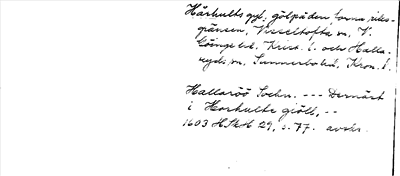 Hårhults gyl, gölpåden, forna riks-
gränsen, Visseltofta sn, V.
Göinge hd, Krist. l. och Halla-
ryds sn, Sunnerbo hd, Kron. l.
Hallaröö Sochn. --- Dernäst
i Horhulte giöll, --
1603 HSH 29, s. 77. avskr.